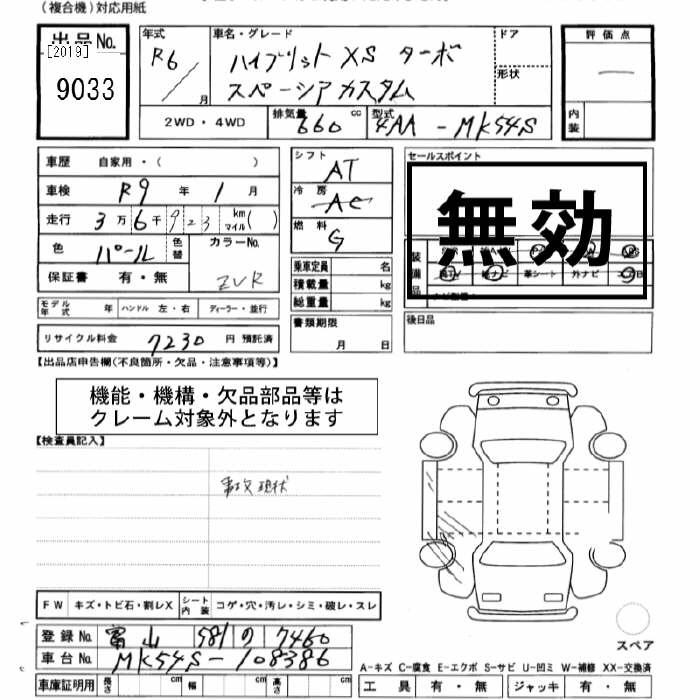 (複合機)対応用紙
出品No.
[2019]
9033
年式
R6
月
車名・グレード
ハイブリット XS ターボ
スペーシアカスタム
ドア
形状
評価点
内装
2WD・4WD
排気量
660
cc
型式
4AA - MK54S
車歴
自家用・( )
車検
R9 年 1 月
走行
3万6千923
km
マイル( )
色
パール
色替
カラーNo.
ZVR
保証書
有・無
シフト
AT
冷房
AC
燃料
G
乗車定員 名
積載量 kg
総重量 kg
書類期限
月 日
セールスポイント
無効
装備品
革シート
外ナビ
後日品
モデル年式 年
ハンドル 左・右
ディーラー・並行
リサイクル料金 7230 円 預託済
【出品店申告欄(不良箇所・欠品・注意事項等)】
機能・機構・欠品部品等は
クレーム対象外となります
【検査員記入】
事故現状
FW
キズ・トビ石・割レX
シート内装
コゲ・穴・汚レ・シミ・破レ・スレ
登録No. 富山 581 の 7460
車台No. MK54S-108386
スペア
A-キズ C-腐食 E-エクボ S-サビ U-凹ミ W-補修 XX-交換済
車庫証明用
長さ cm
幅 cm
高さ cm
工具 有・無
ジャッキ 有・無